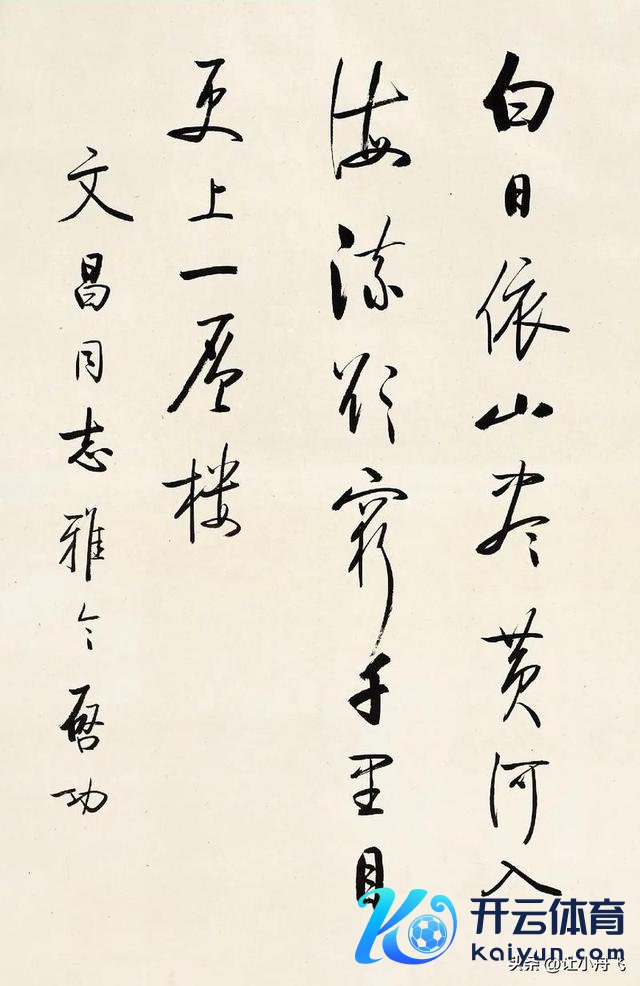 白日依山尽黄河入
海流欲穷千里目
更上一层楼
文昌同志雅令启功
开云体育
kaiyun.com
头条 @让小丹飞